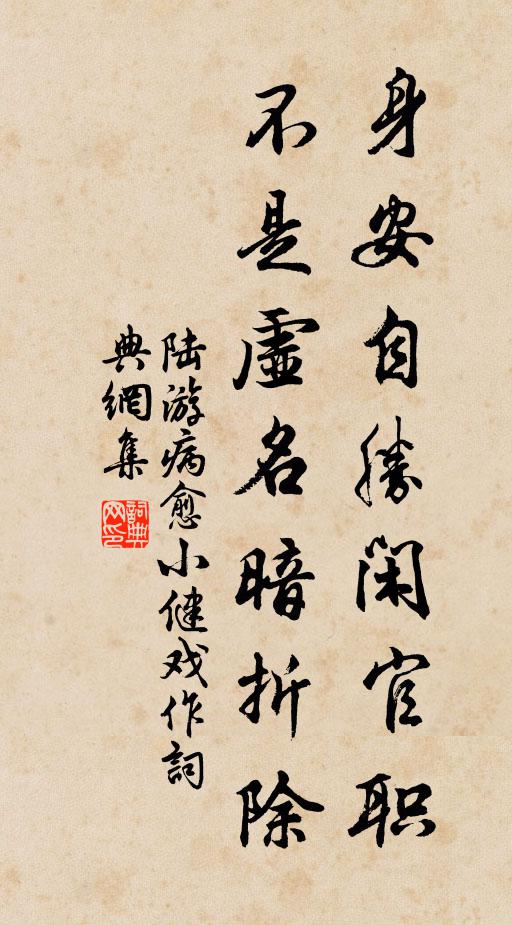 身安自勝闲官职
不是虛名暗折除
陆游病愈小健戏作詞
典網集
詞典网印